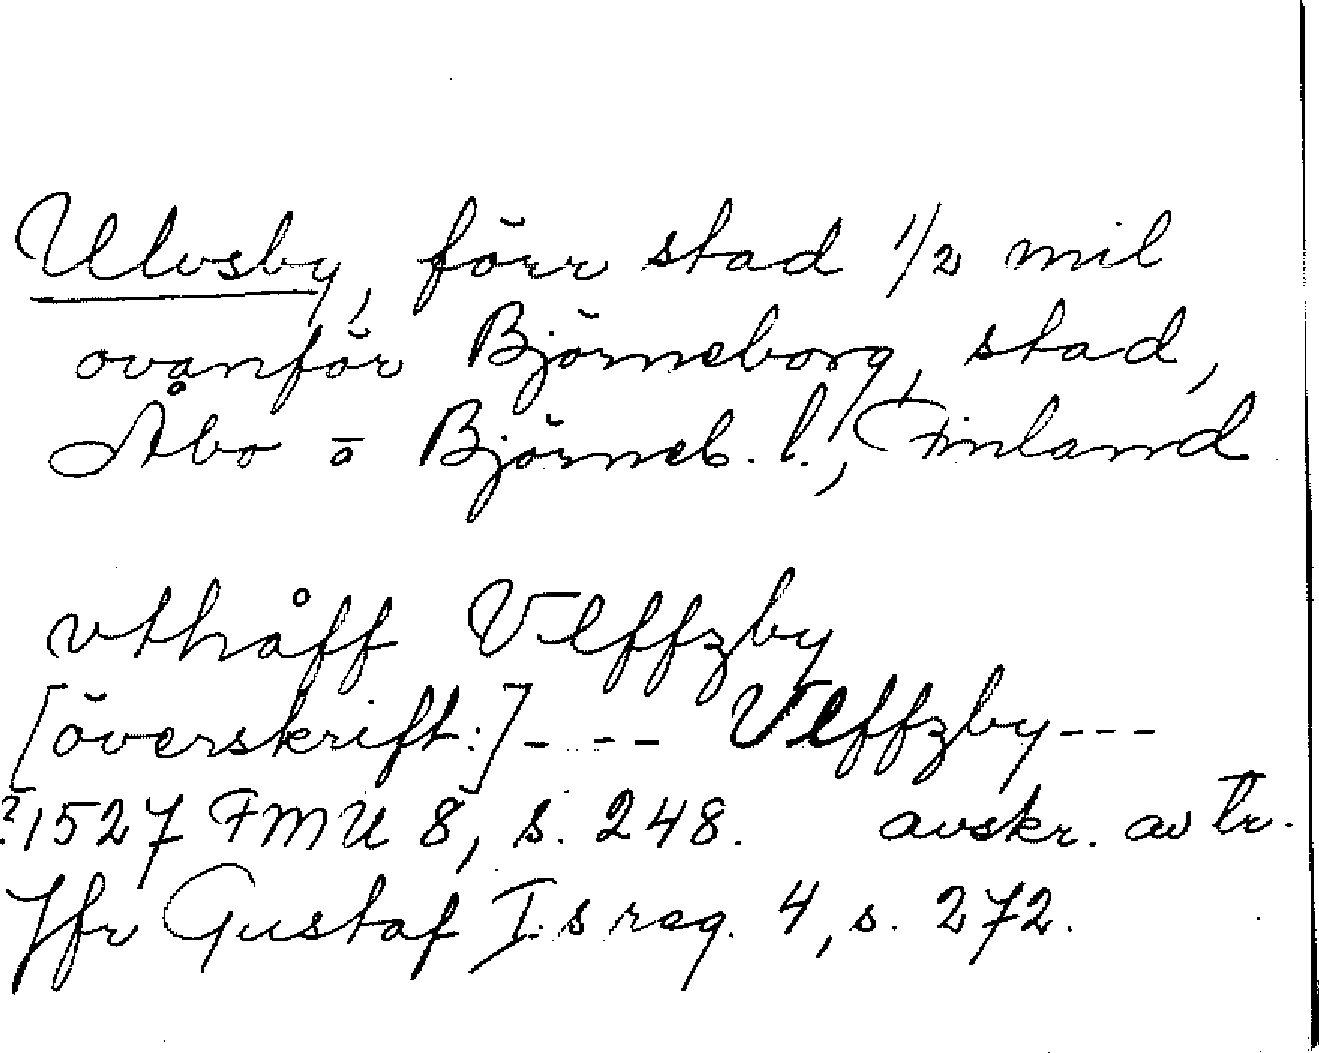 Ulvsby, förr stad 1/2 mil
ovanför Björneborg, stad,
Åbo o Björneb. l., Finland
vthåff Vlffzby
[överskrift:]---- Vlffzby---
?1527 FMU 8, s. 248. avskr. av tr.
Jfr Gustaf I:s reg. 4, s. 272.